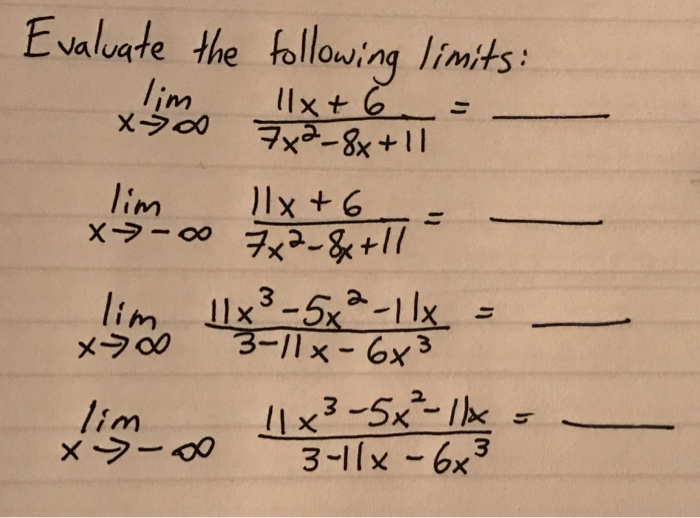 Evaluate the following limits:
lim x→∞ (11x + 6)/(7x² - 8x + 11) = ____
lim x→-∞ (11x + 6)/(7x² - 8x + 11) = ____
lim x→∞ (11x³ - 5x² - 11x)/(3 - 11x - 6x³) = ____
lim x→-∞ (11x³ - 5x² - 11x)/(3 - 11x - 6x³) = ____